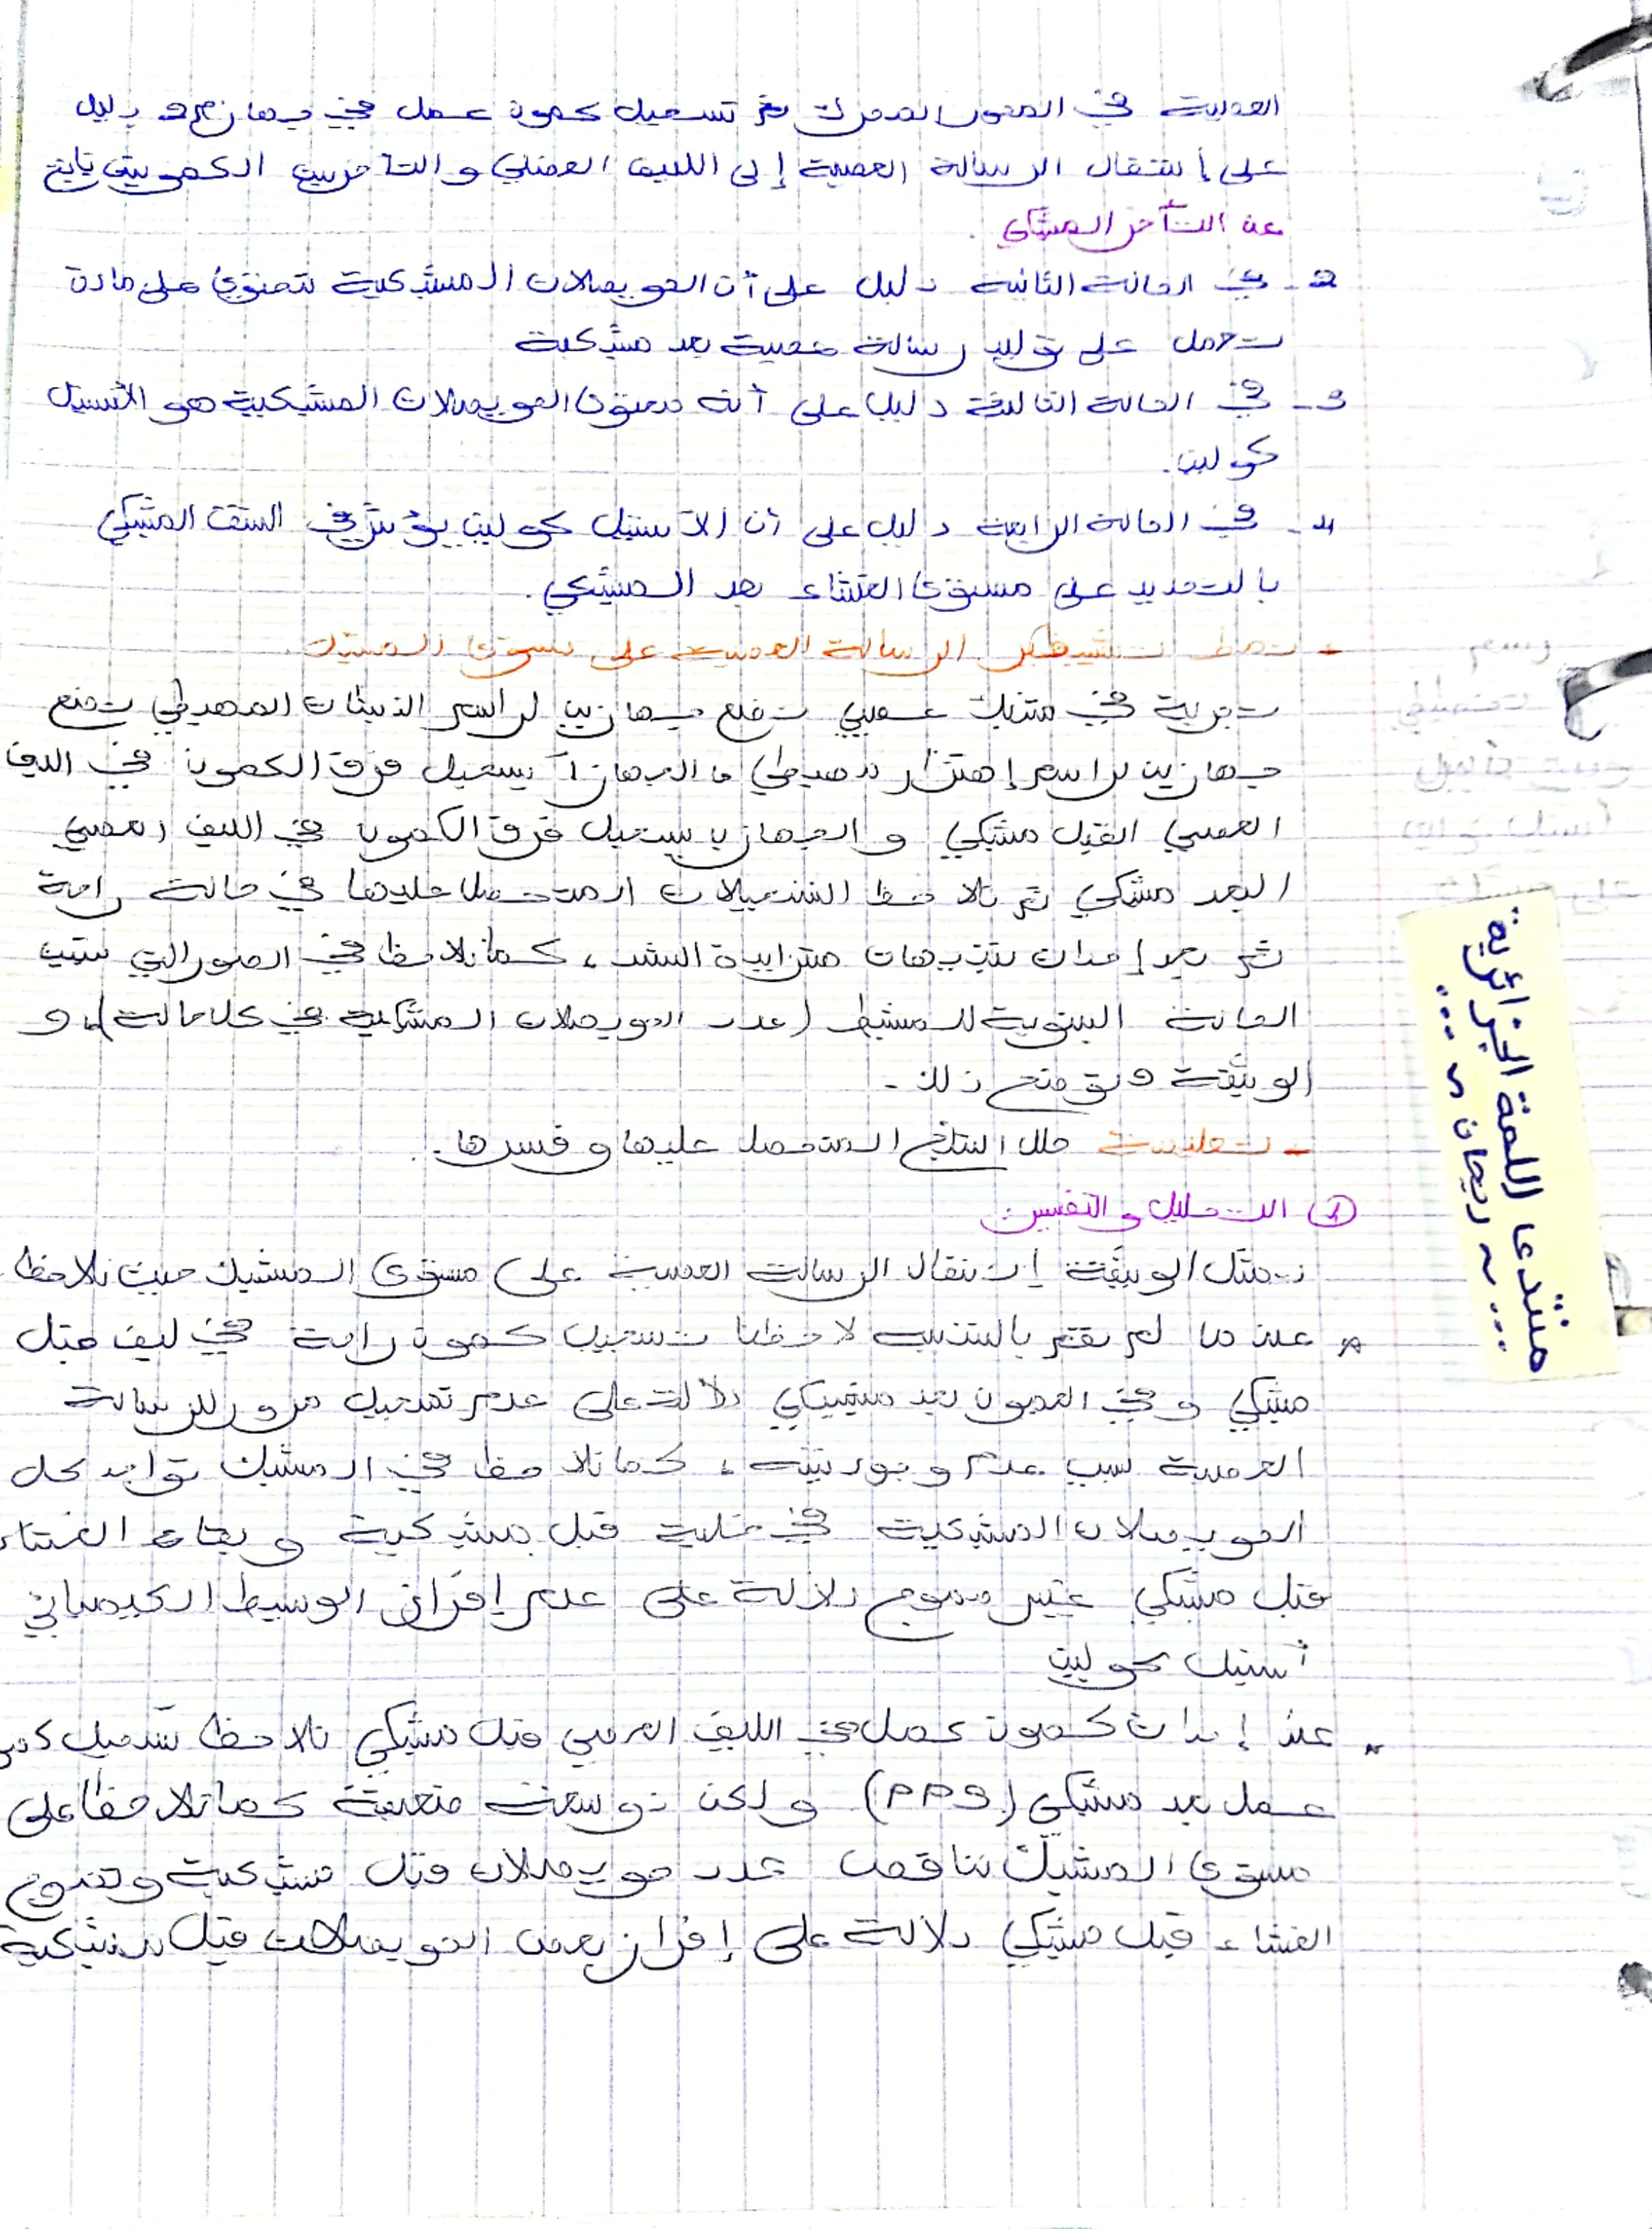 العصبية في المحور المحرك ثم تسجيل كمون عمل في جهاز م2 دليل
على إنتقال الرسالة العصبية إلى الليف العضلي والتأخر بين الكمونين ناتج
عن التأخر المشبكي.
2- في الحالة الثانية دليل على أن الحويصلات المشبكية تحتوي على مادة
تعمل على توليد رسالة عصبية بعد مشبكية
3- في الحالة الثالثة دليل على أنه محتوى الحويصلات المشبكية هو الأستيل
كولين.
4- في الحالة الرابعة دليل على أن الأستيل كولين يؤثر في الشق المشبكي
بالتحديد على مستوى الغشاء بعد المشبكي.
- نمط تشفير الرسالة العصبية على مستوى المشبك
تجربة في مشبك عصبي نضع جهازين لراسم الذبذبات المهبطي نضع
جهازين لراسم إهتزاز مهبطي الجهاز أ يسجل فرق الكمون في الليف
العصبي القبل مشبكي و الجهاز ب يسجل فرق الكمون في الليف العصبي
البعد مشبكي ثم نلاحظ التسجيلات المتحصل عليها في حالة راحة
ثم بعد إحداث تنبيهات متزايدة الشدة، كما نلاحظ في الصور التي تبين
الحالة البنيوية للمشبك (عدد الحويصلات المشبكية في كل حالة)، و
الوثيقة توضح ذلك -
- تعليمة حلل النتائج المتحصل عليها و فسرها.
① التحليل و التفسير:
تمثل الوثيقة إنتقال الرسالة العصبية على مستوى المشبك حيث نلاحظ
* عندما لم نقم بالتنبيه لاحظنا تسجيل كمون راحة في ليف قبل
مشبكي و في العصبون بعد مشبكي دلالة على عدم تسجيل مرور للرسالة
العصبية لسبب عدم وجود تنبيه، كما نلاحظ في المشبك تواجد كل
الحويصلات المشبكية في خلية قبل مشبكية و بقاء الغشاء
قبل مشبكي غير مموج دلالة على عدم إفراز الوسيط الكيميائي
أستيل كولين
* عند إحداث كمون عمل في الليف العصبي قبل مشبكي نلاحظ تسجيل كمون
عمل بعد مشبكي (PPS) ولكن ذو سعة ضعيفة كما نلاحظ على
مستوى المشبك تناقص عدد حويصلات قبل مشبكية و تموج
الغشاء قبل مشبكي دلالة على إفراز بعض الحويصلات قبل مشبكية
منتدى اللمة الجزائرية
~ ريحان ~